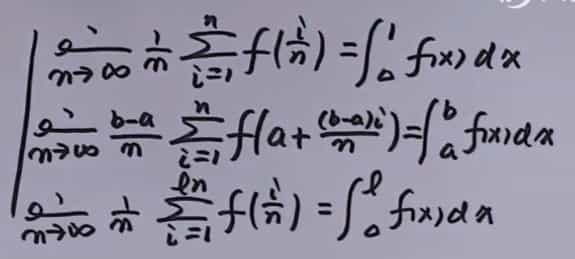 lim n→∞ 1/n ∑_{i=1}^{n} f(i/n) = ∫_0^1 f(x)dx
lim n→∞ (b-a)/n ∑_{i=1}^{n} f(a+(b-a)i/n) = ∫_a^b f(x)dx
lim n→∞ 1/n ∑_{i=1}^{ln} f(i/n) = ∫_0^l f(x)dx